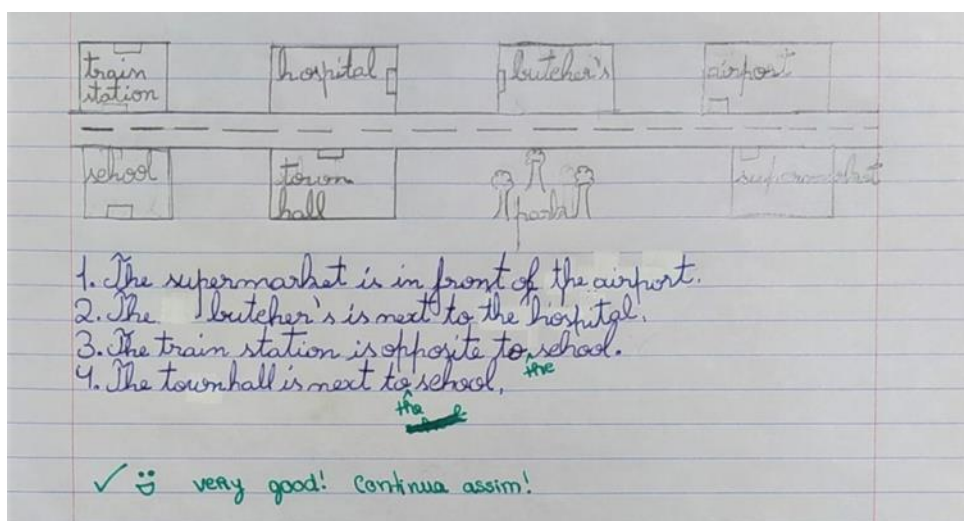 train station
hospital
butcher's
airport
school
town hall
park
supermarket
1. The supermarket is in front of the airport.
2. The butcher's is next to the hospital.
3. The train station is opposite to school.
the
4. The townhall is next to school.
the
✓ very good! Continua assim!